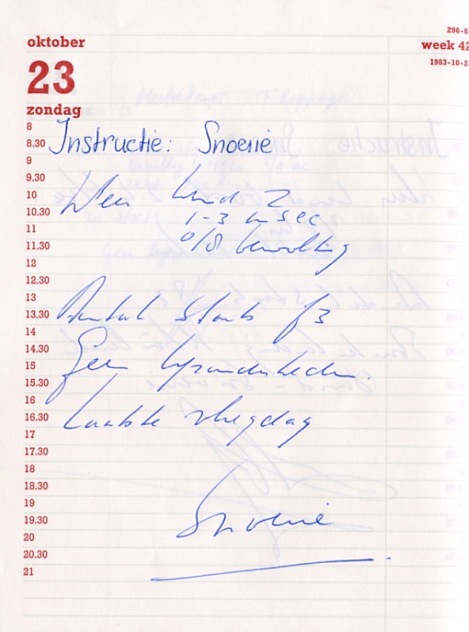 296-6
oktober
week 42
23
1983-10-2
zondag
8
8.30
Instructie: Snoerie
9
9.30
10
Weer wind Z
10.30
1-3 m sec
11
0/8 bewolking
11.30
12
12.30
13
13.30
Aantal starts 53
14
14.30
Geen bijzonderheden.
15
15.30
16
16.30
Laatste vliegdag
17
17.30
18
18.30
19
19.30
Snoerie
20
20.30
21